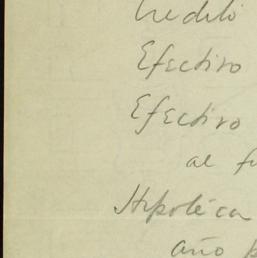 Credito
Efectivo
Efectivo
al
Hipoteca
año